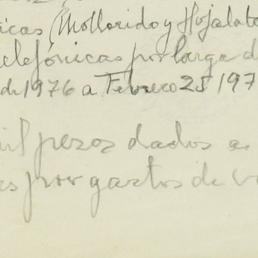 icas (Mollorido y Hojalate
telefónicas por larga d
de 1976 a Febrero 25 197
mil pesos dados a
es por gastos de v